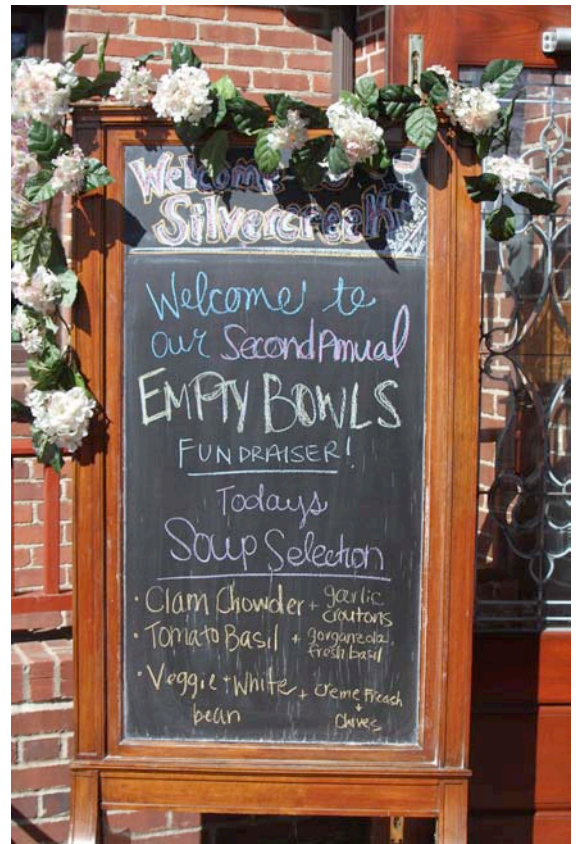 Welcome to
Silvercreek
Welcome to
our Second Annual
EMPTY BOWLS
FUNDRAISER!
Todays
Soup Selection
• Clam Chowder + garlic croutons
• Tomato Basil + gorganzola, fresh basil
• Veggie + White bean + creme Freash + Chives